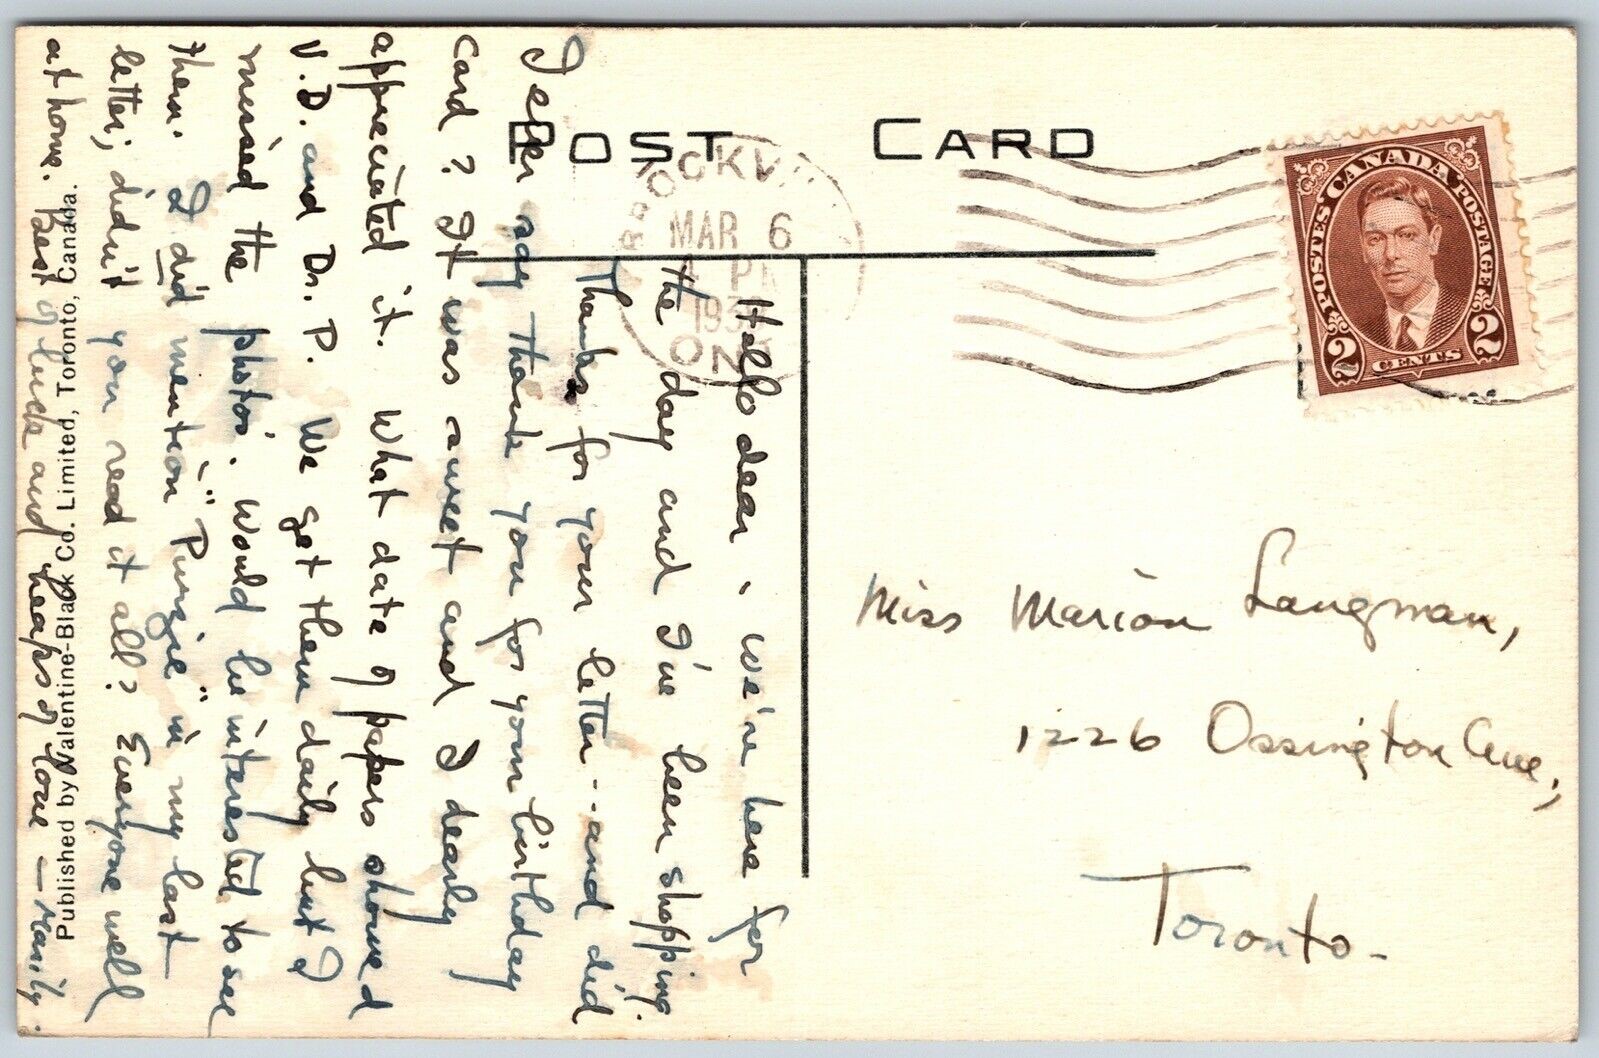 POST CARD
BROCKVI
MAR 6
PM
193
ONT
POSTES CANADA POSTAGE
2 CENTS 2
Hello dear, we're here for
the day and I've been shopping.
Thanks for your letter -- and did
I ever say thank you for your birthday
card? It was sweet and I dearly
appreciated it. What date of papers showed
V.D. and Dr. P. We get them daily but I
missed the photos. Would be interested to see
them. I did mention "Punzie" in my last
letter; didn't you read it all? Everyone well
at home. Best of luck and heaps of love —
Miss Marion Langman,
1226 Ossington Ave.,
Toronto.
Published by Valentine-Black Co. Limited, Toronto, Canada.